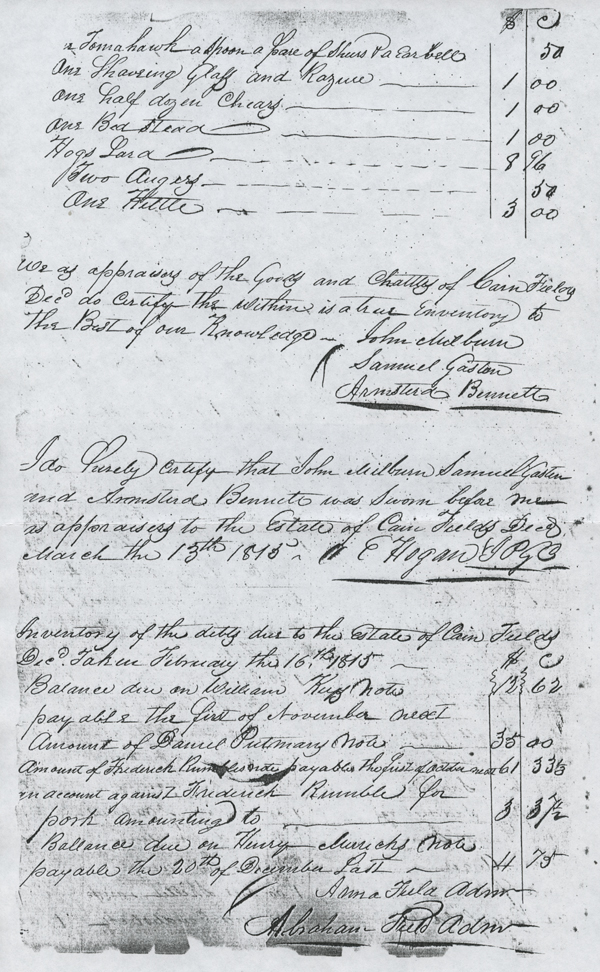 $ C
a Tomahawk a Spoon a pare of Shears & a Ear bell 50
One Shaveing Glass and Razure 1 00
One half dozen Chears 1 00
One Bed stead 1 00
Hogs Lard 8 96
Two Augers 50
One Kittle 3 00
We as appraisers of the Goods and Chattles of Cain Fields
Decd do Certify the within is a true Inventory to
the Best of our Knowledge John Milburn
Samuel Gaston
Armsterd Bennett
I do hereby Certify that John Milburn Samuel Gaston
and Armsterd Bennett was Sworn before me
as appraisers to the Estate of Cain Fields Decd
March the 13th 1815 E Hogan J P G C
Inventory of the debts due to the Estate of Cain Fields
Decd. Taken February the 16th 1815 $ C
Balance due on William Note 12 62
payable the first of November next
Amount of Daniel Putmans Note 35 00
Amount of Frederick Rumbles note payable the first of next 61 33⅓
an account against Frederick Rumble for
pork amounting to 3 37½
Ballance due on Henry Note
payable the 20th of December Last 4 75
Anna Field Admr
Abraham Field Admr